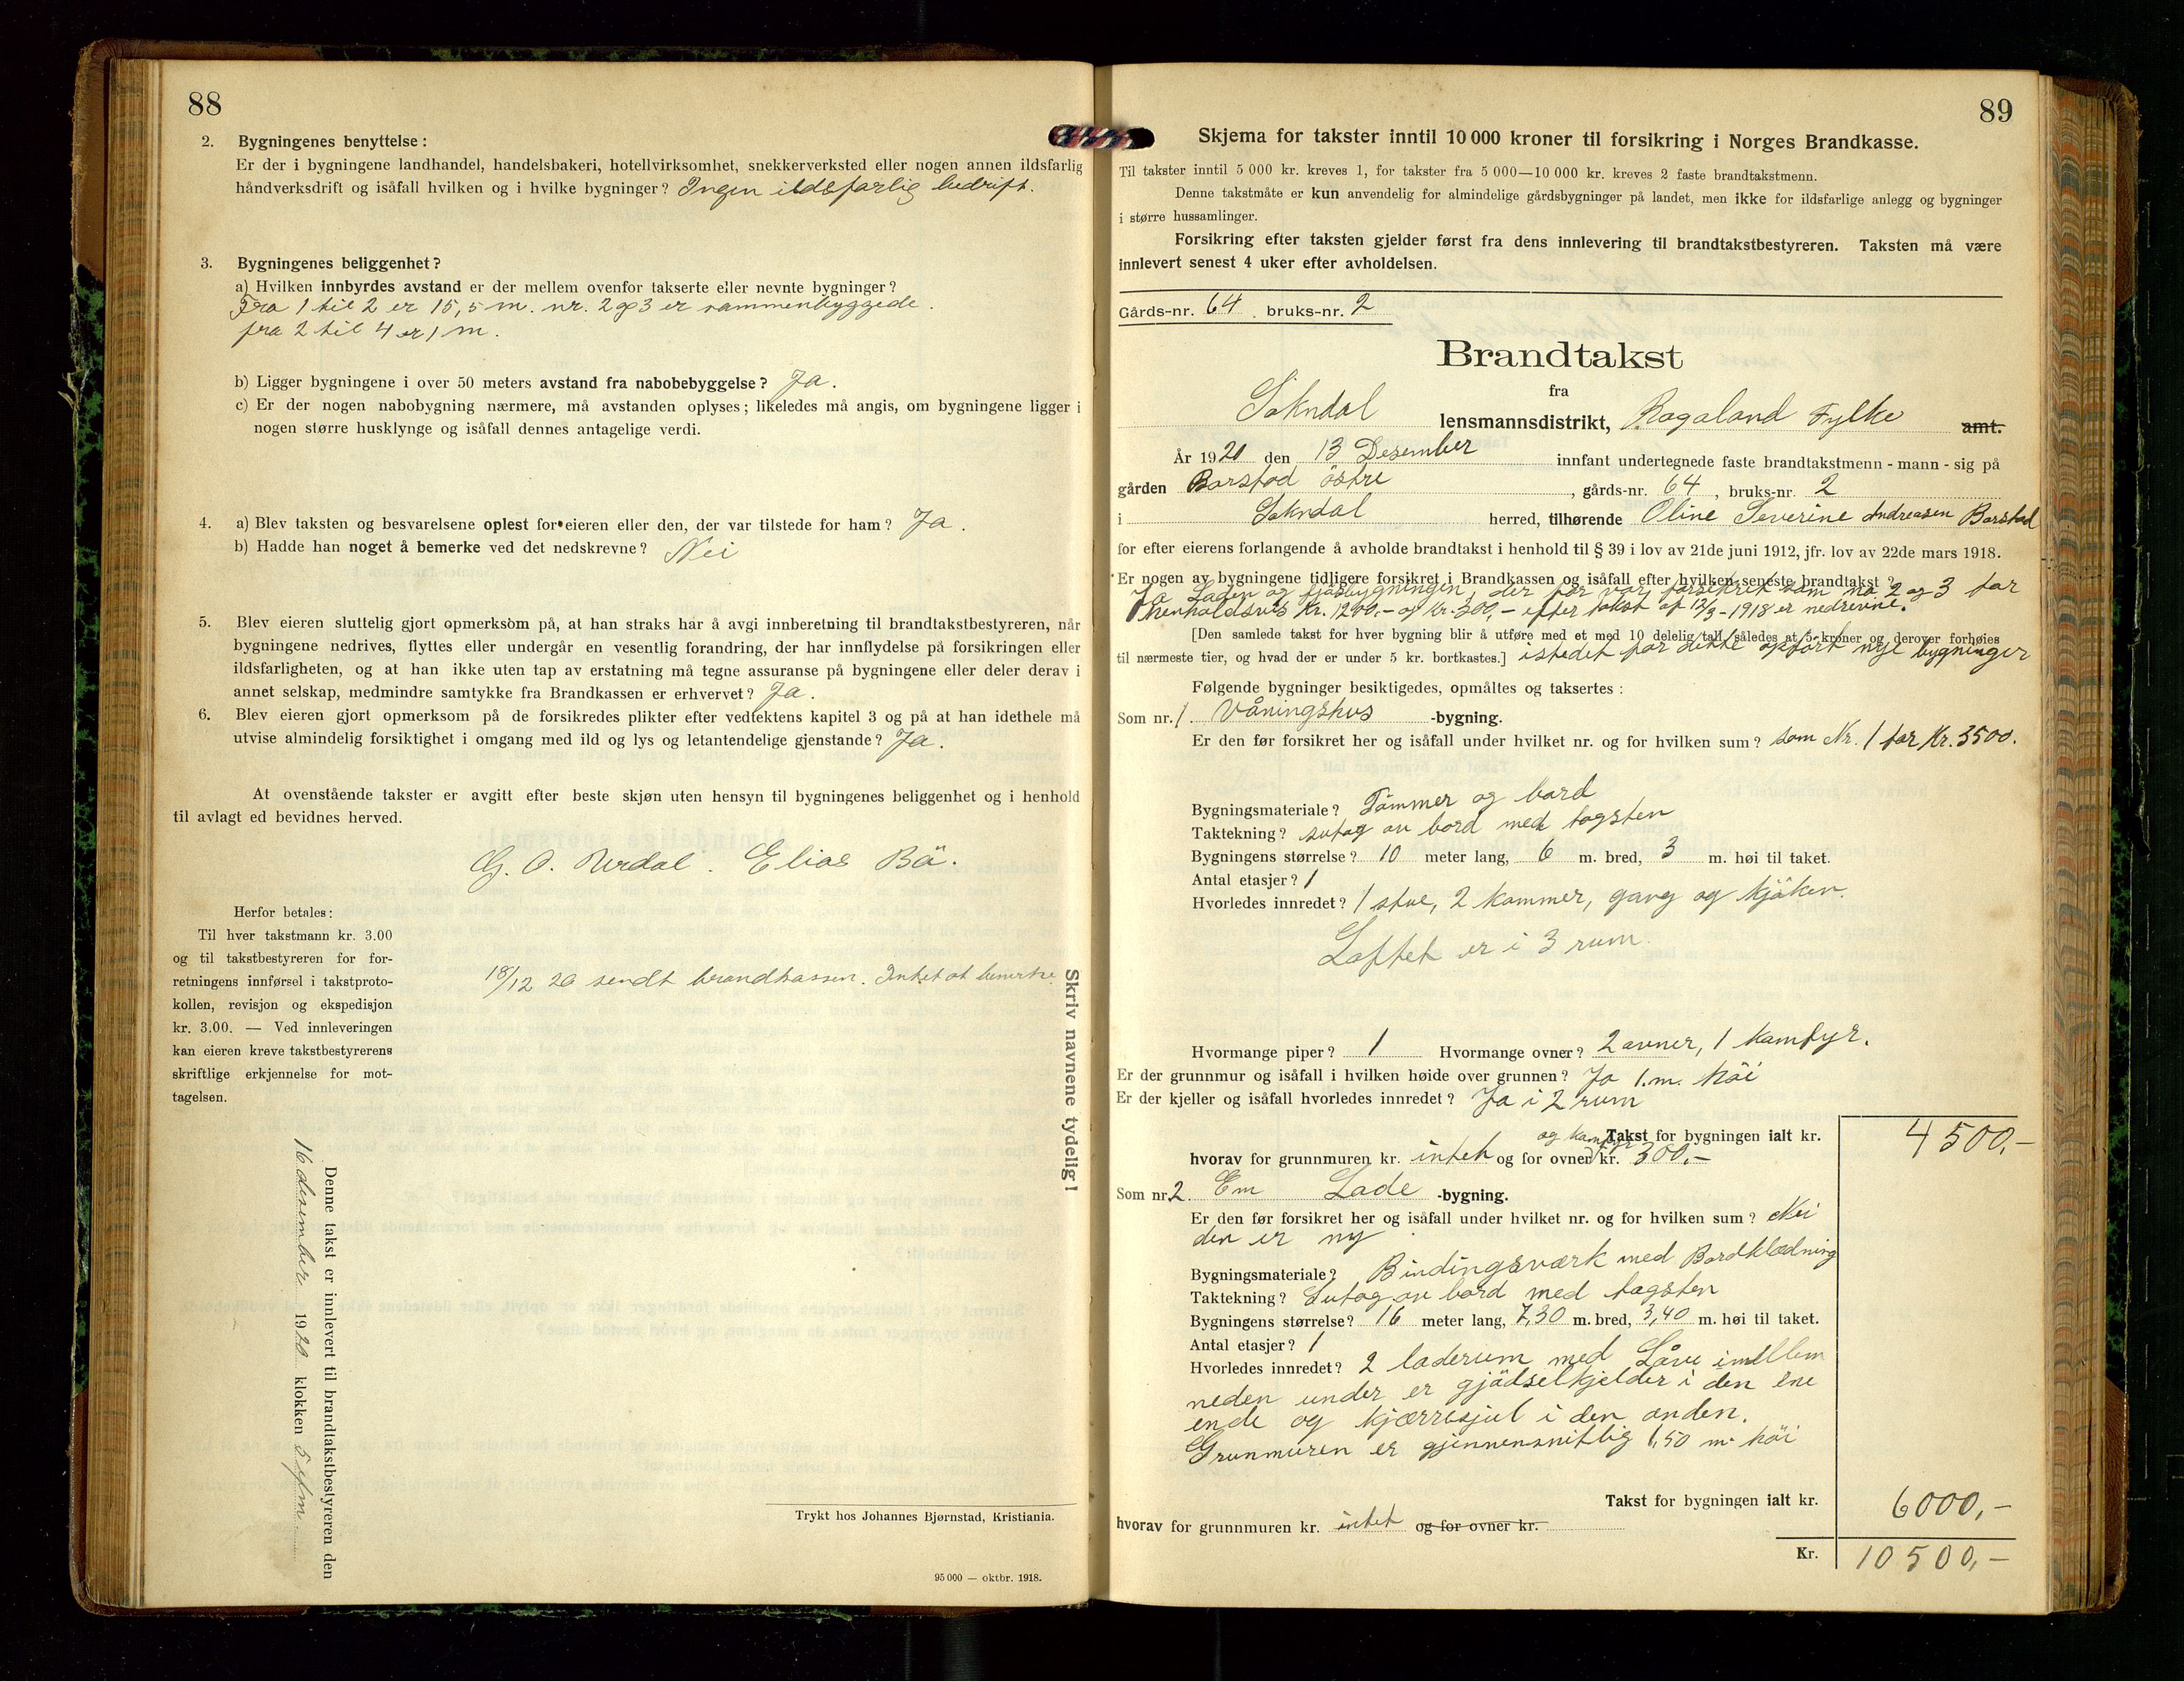 88
2. Bygningenes benyttelse:
Er der i bygningene landhandel, handelsbakeri, hotellvirksomhet, snekkerverksted eller nogen annen ildsfarlig
håndverksdrift og isåfall hvilken og i hvilke bygninger? Ingen ildsfarlig bedrift.
3. Bygningenes beliggenhet?
a) Hvilken innbyrdes avstand er der mellem ovenfor takserte eller nevnte bygninger?
Fra 1 til 2 er 15,5 m. nr. 2 og 3 er sammenbyggede.
fra 2 til 4 er 1 m.
b) Ligger bygningene i over 50 meters avstand fra nabobebyggelse? Ja.
c) Er der nogen nabobygning nærmere, må avstanden oplyses; likeledes må angis, om bygningene ligger i
nogen større husklynge og isåfall dennes antagelige verdi.
4. a) Blev taksten og besvarelsene oplest for eieren eller den, der var tilstede for ham? Ja.
b) Hadde han noget å bemerke ved det nedskrevne? Nei
5. Blev eieren sluttelig gjort opmerksom på, at han straks har å avgi innberetning til brandtakstbestyreren, når
bygningene nedrives, flyttes eller undergår en vesentlig forandring, der har innflydelse på forsikringen eller
ildsfarligheten, og at han ikke uten tap av erstatning må tegne assuranse på bygningene eller deler derav i
annet selskap, medmindre samtykke fra Brandkassen er erhvervet? Ja.
6. Blev eieren gjort opmerksom på de forsikredes plikter efter vedtektens kapitel 3 og på at han idethele må
utvise almindelig forsiktighet i omgang med ild og lys og letantendelige gjenstande? Ja.
At ovenstående takster er avgitt efter beste skjøn uten hensyn til bygningenes beliggenhet og i henhold
til avlagt ed bevidnes herved.
G. O. Urdal. Elias Bö.
Herfor betales:
Til hver takstmann kr. 3.00
og til takstbestyreren for for-
retningens innførsel i takstproto-
kollen, revisjon og ekspedisjon
kr. 3.00. — Ved innleveringen
kan eieren kreve takstbestyrerens
skriftlige erkjennelse for mot-
tagelsen.
18/12 20 sendt brandkassen. Intet at bemerke.
Skriv navnene tydelig!
Denne takst er innlevert til brandtakstbestyreren den
16 desember 1920 klokken 5 efm
Trykt hos Johannes Bjørnstad, Kristiania.
95 000 — oktbr. 1918.
89
Skjema for takster inntil 10 000 kroner til forsikring i Norges Brandkasse.
Til takster inntil 5 000 kr. kreves 1, for takster fra 5 000—10 000 kr. kreves 2 faste brandtakstmenn.
Denne takstmåte er kun anvendelig for almindelige gårdsbygninger på landet, men ikke for ildsfarlige anlegg og bygninger
i større hussamlinger.
Forsikring efter taksten gjelder først fra dens innlevering til brandtakstbestyreren. Taksten må være
innlevert senest 4 uker efter avholdelsen.
Gårds-nr. 64. bruks-nr. 2
Brandtakst
fra
Sokndal lensmannsdistrikt, Rogaland Fylke amt.
År 1920 den 13 Desember innfant undertegnede faste brandtakstmenn - mann - sig på
gården Barstad östre, gårds-nr. 64, bruks-nr. 2
i Sokndal herred, tilhørende Oline Severine Andreasen Barstad
for efter eierens forlangende å avholde brandtakst i henhold til § 39 i lov av 21de juni 1912, jfr. lov av 22de mars 1918.
Er nogen av bygningene tidligere forsikret i Brandkassen og isåfall efter hvilken seneste brandtakst?
Ja Laden og fjösbygningen, der før var forsikret som no 2 og 3 for
henholdsvis Kr. 1200,- og Kr. 300,- efter takst af 12/3-1918 er nedrevne.
[Den samlede takst for hver bygning blir å utføre med et med 10 delelig tall, således at 5 kroner og derover forhøies
til nærmeste tier, og hvad der er under 5 kr. bortkastes.] istedet for dikke opfört nye bygninger
Følgende bygninger besiktigedes, opmåltes og taksertes:
Som nr. 1. Våningshus -bygning.
Er den før forsikret her og isåfall under hvilket nr. og for hvilken sum? som Nr. 1 for Kr. 3500.
Bygningsmateriale? Tömmer og bord
Taktekning? sutag av bord med tagsten
Bygningens størrelse? 10 meter lang, 6 m. bred, 3 m. høi til taket.
Antal etasjer? 1
Hvorledes innredet? 1 stue, 2 kammer, gang og kjöken.
Loftet er i 3 rum.
Hvormange piper? 1 Hvormange ovner? 2 ovner, 1 komfyr.
Er der grunnmur og isåfall i hvilken høide over grunnen? Ja 1.m. höi
Er der kjeller og isåfall hvorledes innredet? Ja i 2 rum
Takst for bygningen ialt kr. 4500,-
hvorav for grunnmuren kr. intet og for ovner og komfyr kr. 300.-
Som nr. 2. Em Lade -bygning.
Er den før forsikret her og isåfall under hvilket nr. og for hvilken sum? Nei
den er ny
Bygningsmateriale? Bindingsværk med Bordklædning
Taktekning? Sutag av bord med tagsten
Bygningens størrelse? 16 meter lang, 7,30 m. bred, 3,40 m. høi til taket.
Antal etasjer? 1
Hvorledes innredet? 2 laderum med Låve imellem
neden under er gjödselkjelder i den ene
ende og kjærresjul i den anden.
Grunmuren er gjennensnitlig 1,50 m. höi
Takst for bygningen ialt kr. 6000,-
hvorav for grunnmuren kr. intet og for ovner kr.
Kr. 10500,-